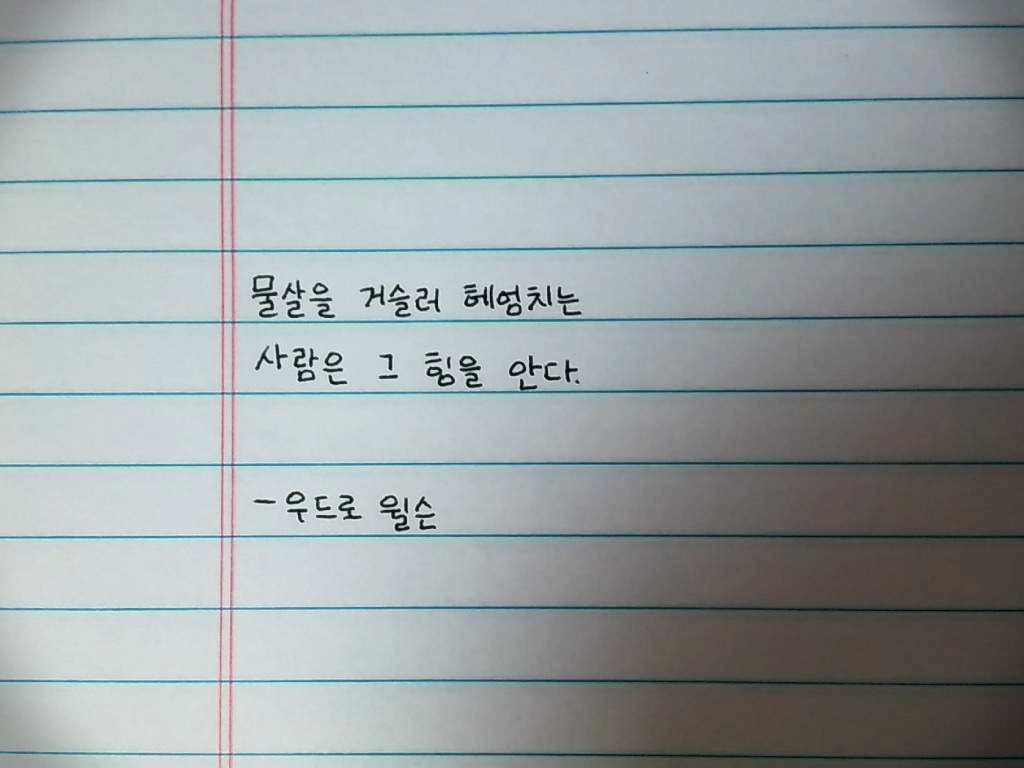 물살을 거슬러 헤엄치는
사람은 그 힘을 안다.
- 우드로 윌슨